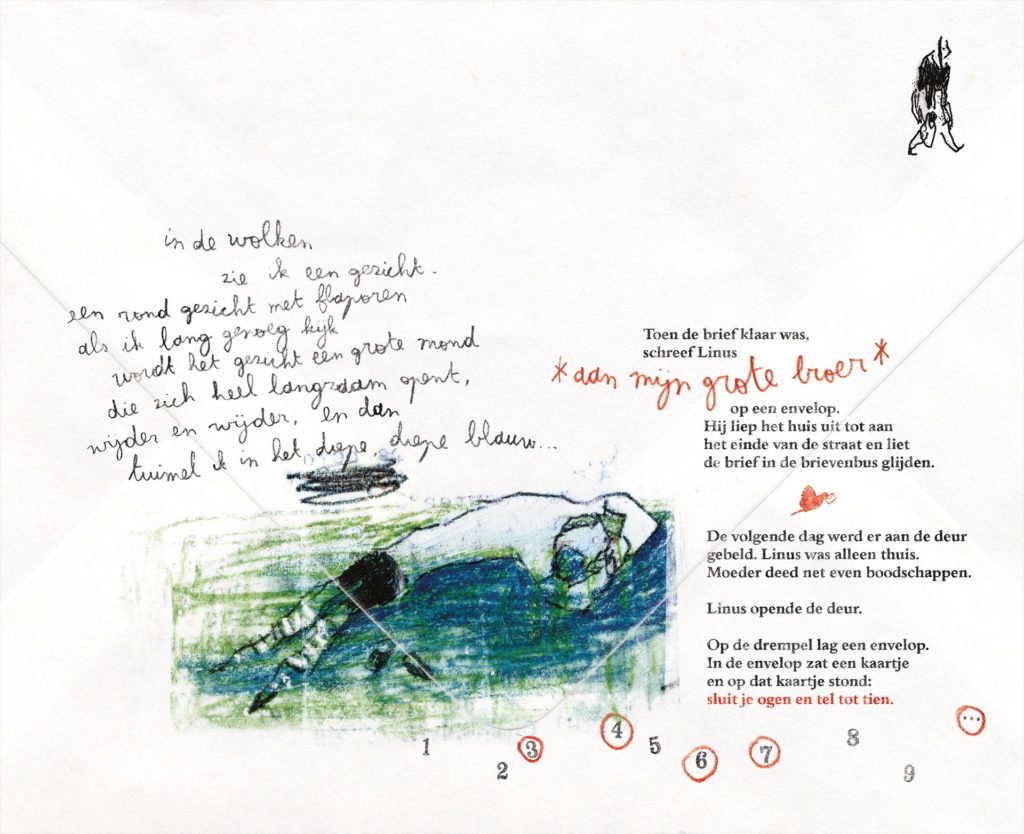 in de wolken
zie ik een gezicht.
een rond gezicht met flaporen
als ik lang genoeg kijk
wordt het gezicht een grote mond
die zich heel langzaam opent,
wijder en wijder, en dan
tuimel ik in het diepe, diepe blauw...
Toen de brief klaar was,
schreef Linus
*aan mijn grote broer*
op een envelop.
Hij liep het huis uit tot aan
het einde van de straat en liet
de brief in de brievenbus glijden.
De volgende dag werd er aan de deur
gebeld. Linus was alleen thuis.
Moeder deed net even boodschappen.
Linus opende de deur.
Op de drempel lag een envelop.
In de envelop zat een kaartje
en op dat kaartje stond:
sluit je ogen en tel tot tien.
1 2 3 4 5 6 7 8 9 ...